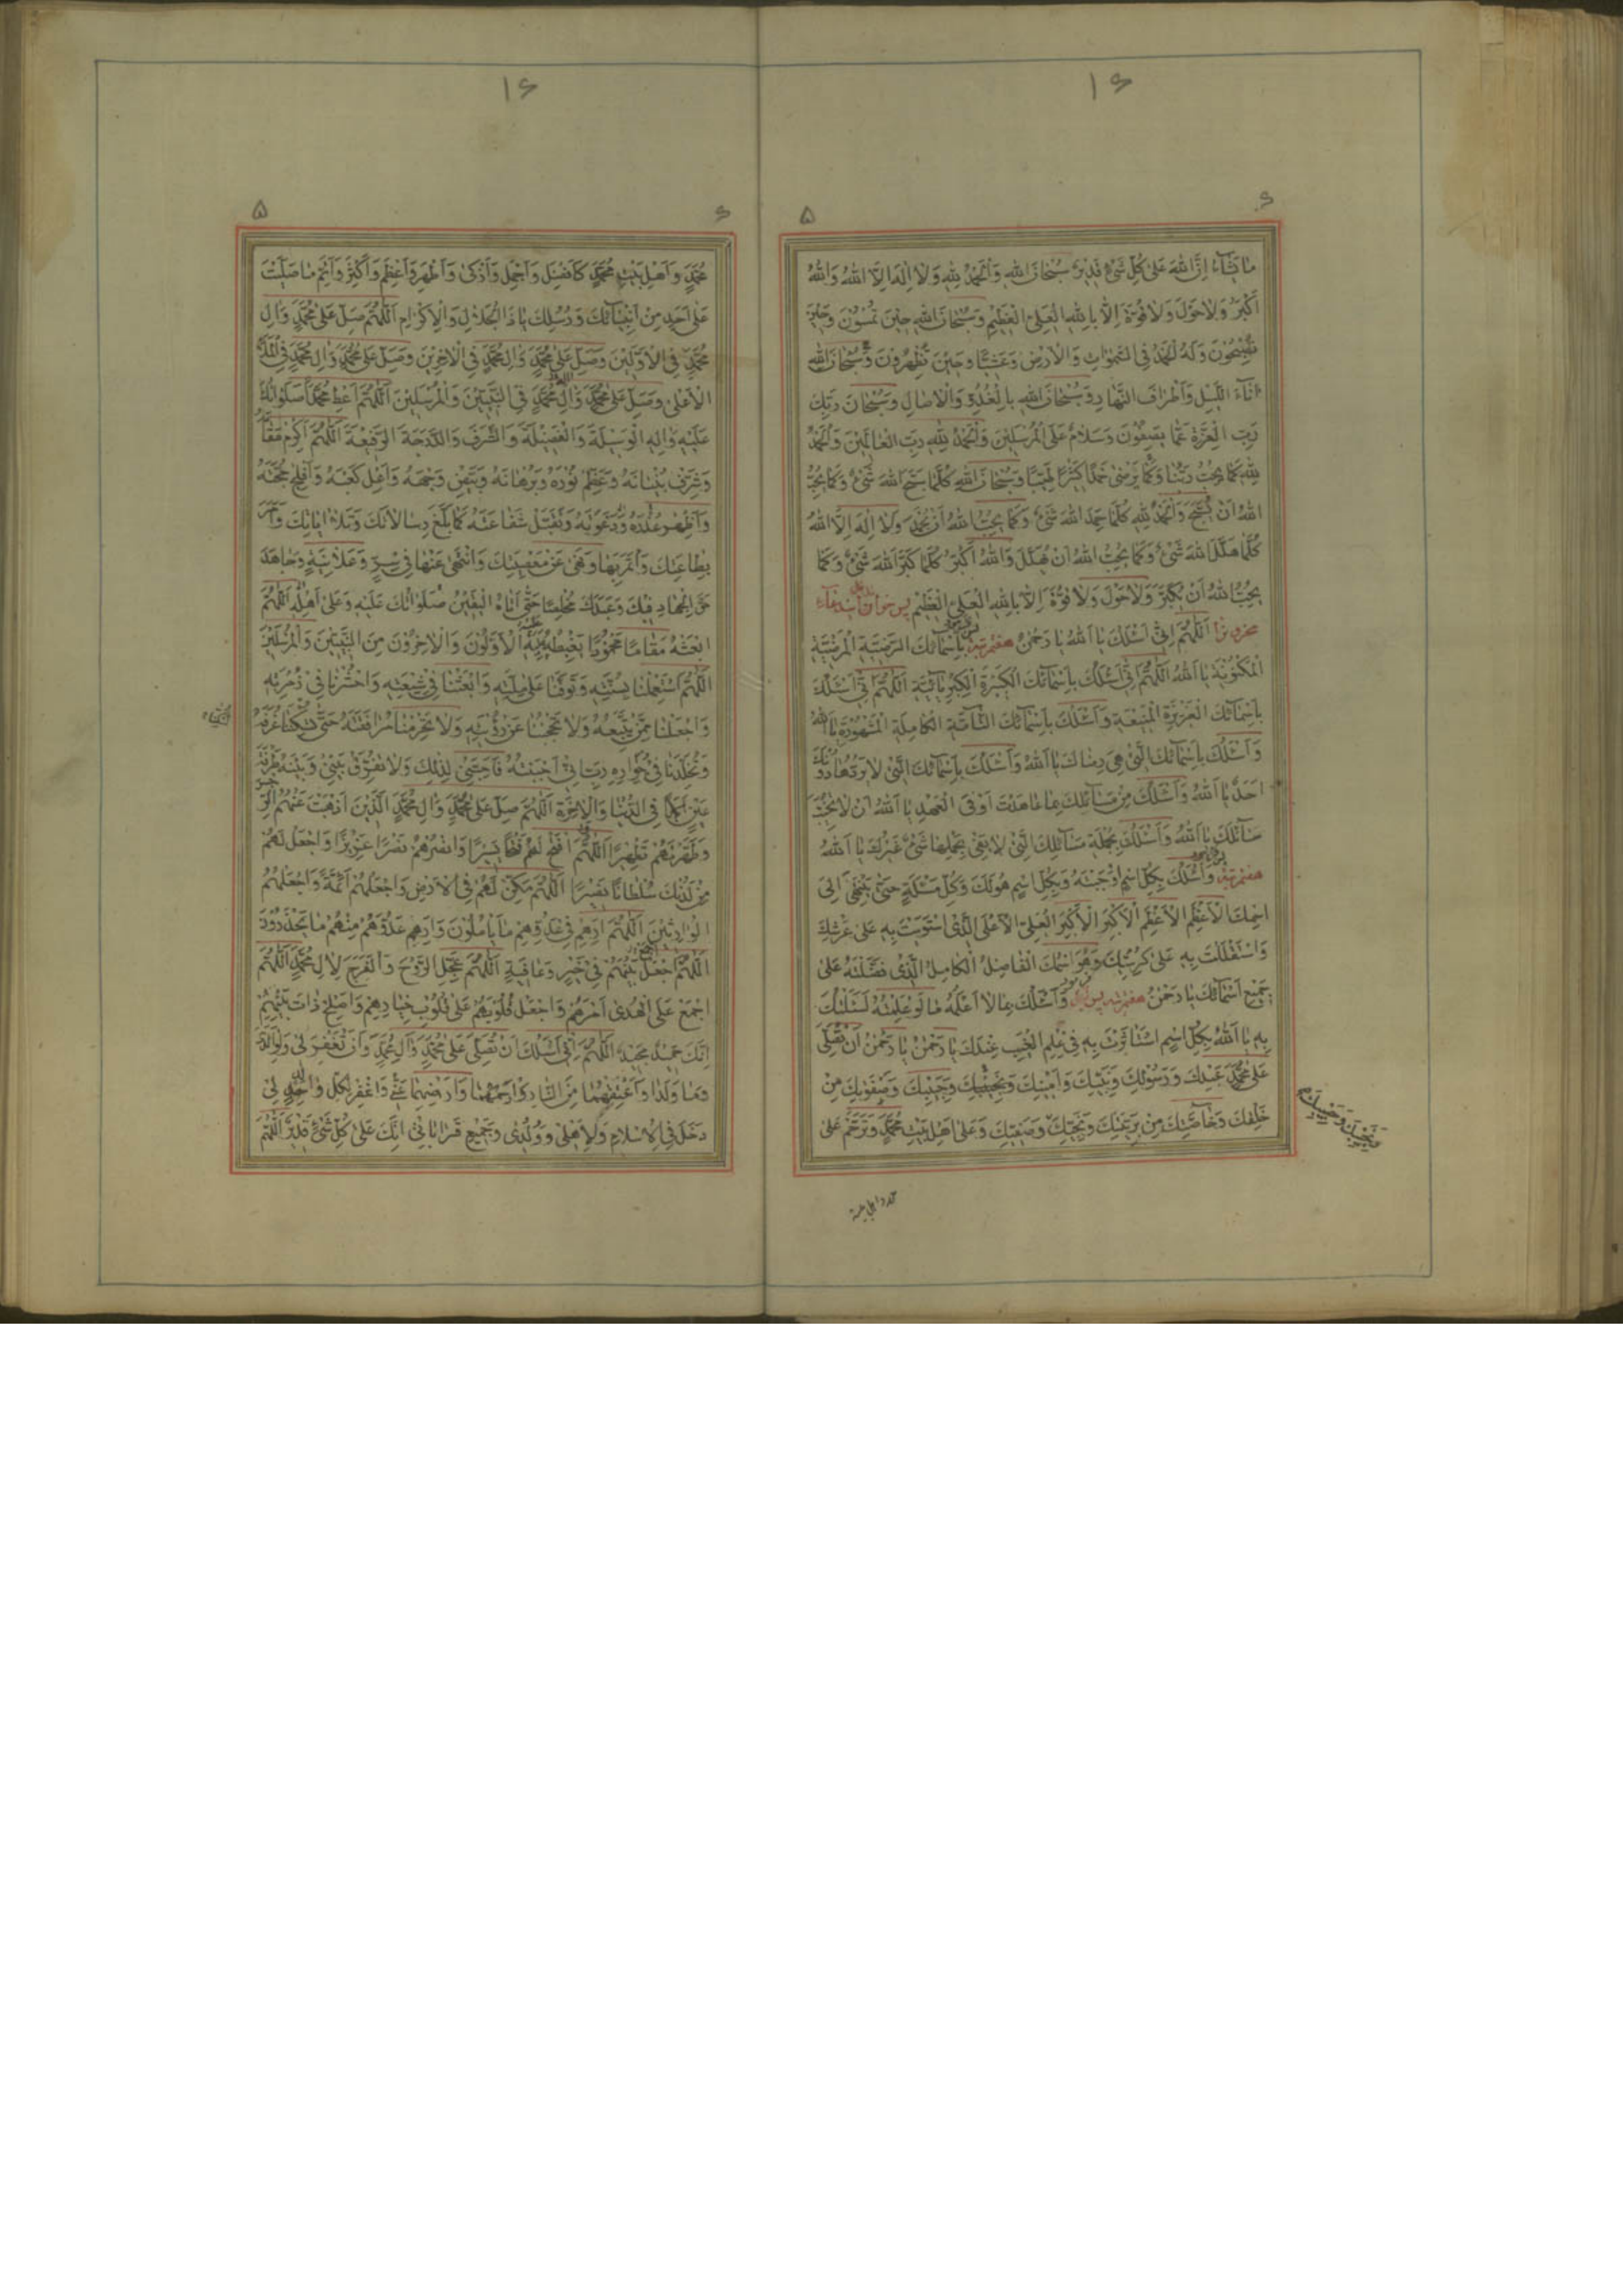 ۱۶
۶
۵
مٰا تَشٰآءُ اِنَّ اللهَ عَلىٰ كُلِّ شَئٍ قَدِيْرٌ سُبْحٰانَ اللهِ وَالْحَمْدُ لِلهِ وَلاٰ اِلٰهَ اِلاَّ اللهُ وَاللهُ
اَكْبَرُ وَلاٰحَوْلَ وَلاٰ قُوَّةَ اِلاّٰ بِاللهِ الْعَلِيِّ الْعَظِيْمِ وَسُبْحٰانَ اللهِ حِيْنَ تُمْسُوْنَ وَحِيْنَ
تُصْبِحُوْنَ وَلَهُ الْحَمْدُ فِى السَّمٰوٰاتِ وَالْاَرْضِ وَعَشِيًّا وَحِيْنَ تُظْهِرُوْنَ وَسُبْحٰانَ اللهِ
اٰنٰآءَ اللَّيْلِ وَاَطْرٰافَ النَّهٰارِ وَسُبْحٰانَ اللهِ بِالْغُدُوِّ وَالْاٰصٰالِ وَسُبْحٰانَ رَبِّكَ
رَبِّ الْعِزَّةِ عَمّٰا يَصِفُوْنَ وَسَلاٰمٌ عَلَى الْمُرْسَلِيْنَ وَالْحَمْدُ لِلهِ رَبِّ الْعٰالَمِيْنَ وَالْحَمْدُ
لِلهِ كَمٰا يُحِبُّ رَبُّنٰا وَكَمٰا يَرْضىٰ حَمْدًا كَثِيْرًا طَيِّبًا وَسُبْحٰانَ اللهِ كُلَّمٰا سَبَّحَ اللهَ شَئٌ وَكَمٰا يُحِبُّ
اللهُ اَنْ يُسَبَّحَ وَالْحَمْدُ لِلهِ كُلَّمٰا حَمِدَ اللهَ شَئٌ وَكَمٰا يُحِبُّ اللهُ اَنْ يُحْمَدَ وَلاٰ اِلٰهَ اِلاَّ اللهُ
كُلَّمٰا هَلَّلَ اللهَ شَئٌ وَكَمٰا يُحِبُّ اللهُ اَنْ يُهَلَّلَ وَاللهُ اَكْبَرُ كُلَّمٰا كَبَّرَ اللهَ شَئٌ وَكَمٰا
يُحِبُّ اللهُ اَنْ يُكَبَّرَ وَلاٰحَوْلَ وَلاٰ قُوَّةَ اِلاّٰ بِاللهِ الْعَلِيِّ الْعَظِيْمِ پس بخوان
اَللّٰهُمَّ اِنِّى اَسْئَلُكَ يٰا اَللهُ يٰا رَحْمٰنُ هفتمرتبه بِاَسْمٰآئِكَ الرَّضِيَّةِ الْمَرْضِيَّةِ
الْمَكْنُوْنَةِ يٰا اَللهُ اَللّٰهُمَّ اِنِّى اَسْئَلُكَ بِاَسْمٰآئِكَ الْكَبِيْرَةِ الْكِبْرِيٰآئِيَّةِ اَللّٰهُمَّ اِنِّى اَسْئَلُكَ
بِاَسْمٰآئِكَ الْعَزِيْزَةِ الْمَنِيْعَةِ وَاَسْئَلُكَ بِاَسْمٰآئِكَ التّٰآمَّةِ الْكٰامِلَةِ الْمَشْهُوْرَةِ يٰا اَللهُ
وَاَسْئَلُكَ بِاَسْمٰآئِكَ الَّتِى هِىَ رِضٰاكَ يٰا اَللهُ وَاَسْئَلُكَ بِاَسْمٰآئِكَ الَّتِى لاٰ يَرُدُّهٰا دُوْنَكَ
اَحَدٌ يٰا اَللهُ وَاَسْئَلُكَ مِنْ مَسٰآئِلِكَ بِمٰا عٰاهَدْتَ اَوْفَى الْعَهْدِ يٰا اَللهُ اَنْ لاٰ تُخَيِّبَ
سٰآئِلَكَ يٰا اَللهُ وَاَسْئَلُكَ بِجُمْلَةِ مَسٰآئِلِكَ الَّتِى لاٰ يَفِى بِحَمْلِهٰا شَئٌ غَيْرُكَ يٰا اَللهُ
هفتمرتبه وَاَسْئَلُكَ بِكُلِّ اسْمٍ اَوْجَبْتَهُ وَبِكُلِّ اسْمٍ هُوَ لَكَ وَكُلِّ مَسْئَلَةٍ حَتّىٰ يَنْتَهِىَ اِلىَ
اسْمِكَ الْاَعْظَمِ الْاَعْظَمِ الْاَكْبَرِ الْاَكْبَرِ الْعَلِيِّ الْاَعْلَى الَّذِى اسْتَوَيْتَ بِهِ عَلىٰ عَرْشِكَ
وَاسْتَقْلَلْتَ بِهِ عَلىٰ كُرْسِيِّكَ وَهُوَ اسْمُكَ الْفٰاضِلُ الْكٰامِلُ الَّذِى فَضَّلْتَهُ عَلىٰ
جَمِيْعِ اَسْمٰآئِكَ يٰا رَحْمٰنُ هفتمرتبه وَاَسْئَلُكَ بِمٰا لاٰ اَعْلَمُهُ مٰا لَوْ عَلِمْتُهُ لَسَئَلْتُكَ
بِهِ يٰا اَللهُ بِكُلِّ اسْمٍ اسْتَأْثَرْتَ بِهِ فِى عِلْمِ الْغَيْبِ عِنْدَكَ يٰا رَحْمٰنُ يٰا رَحْمٰنُ اَنْ تُصَلِّىَ
عَلىٰ مُحَمَّدٍ عَبْدِكَ وَرَسُوْلِكَ وَنَبِيِّكَ وَاَمِيْنِكَ وَنَجِيْبِكَ وَحَبِيْبِكَ وَصَفْوَتِكَ مِنْ
خَلْقِكَ وَخٰآصَّتِكَ مِنْ بَرِيَّتِكَ وَنَجِيِّكَ وَصَفِيِّكَ وَعَلىٰ اَهْلِ بَيْتِ مُحَمَّدٍ وَتَرَحَّمْ عَلىٰ
۱۶
۶
۵
مُحَمَّدٍ وَاَهْلِ بَيْتِ مُحَمَّدٍ كَاَفْضَلِ وَاَجْمَلِ وَاَزْكىٰ وَاَطْهَرِ وَاَعْظَمِ وَاَكْثَرِ وَاَتَمِّ مٰا صَلَّيْتَ
عَلىٰ اَحَدٍ مِنْ اَنْبِيٰآئِكَ وَرُسُلِكَ يٰا ذَا الْجَلاٰلِ وَالْاِكْرٰامِ اَللّٰهُمَّ صَلِّ عَلىٰ مُحَمَّدٍ وَاٰلِ
مُحَمَّدٍ فِى الْاَوَّلِيْنَ وَصَلِّ عَلىٰ مُحَمَّدٍ وَاٰلِ مُحَمَّدٍ فِى الْاٰخِرِيْنَ وَصَلِّ عَلىٰ مُحَمَّدٍ وَاٰلِ مُحَمَّدٍ فِى الْمَلَأِ
الْاَعْلىٰ وَصَلِّ عَلىٰ مُحَمَّدٍ وَاٰلِ مُحَمَّدٍ فِى النَّبِيِّيْنَ وَالْمُرْسَلِيْنَ اَللّٰهُمَّ اَعْطِ مُحَمَّدًا صَلَوٰاتُكَ
عَلَيْهِ وَاٰلِهِ الْوَسِيْلَةَ وَالْفَضِيْلَةَ وَالشَّرَفَ وَالدَّرَجَةَ الرَّفِيْعَةَ اَللّٰهُمَّ اَكْرِمْ مَقٰامَهُ
وَشَرِّفْ بُنْيٰانَهُ وَعَظِّمْ نُوْرَهُ وَبُرْهٰانَهُ وَبَيِّضْ وَجْهَهُ وَاَعْلِ كَعْبَهُ وَاَفْلِجْ حُجَّتَهُ
وَاَظْهِرْ عُذْرَهُ وَدَعْوَتَهُ وَتَقَبَّلْ شَفٰاعَتَهُ كَمٰا بَلَّغَ رِسٰالاٰتِكَ وَتَلاٰ اٰيٰاتِكَ وَاَمَرَ
بِطٰاعَتِكَ وَائْتَمَرَ بِهٰا وَنَهىٰ عَنْ مَعْصِيَتِكَ وَانْتَهىٰ عَنْهٰا فِى سِرٍّ وَعَلاٰنِيَةٍ وَجٰاهَدَ
حَقَّ الْجِهٰادِ فِيْكَ وَعَبَدَكَ مُخْلِصًا حَتّىٰ اَتٰاهُ الْيَقِيْنُ صَلَوٰاتُكَ عَلَيْهِ وَعَلىٰ اَهْلِهِ اَللّٰهُمَّ
ابْعَثْهُ مَقٰامًا مَحْمُوْدًا يَغْبِطُهُ بِهِ الْاَوَّلُوْنَ وَالْاٰخِرُوْنَ مِنَ النَّبِيِّيْنَ وَالْمُرْسَلِيْنَ
اَللّٰهُمَّ اسْتَعْمِلْنٰا بِسُنَّتِهِ وَتَوَفَّنٰا عَلىٰ مِلَّتِهِ وَابْعَثْنٰا فِى شِيْعَتِهِ وَاحْشُرْنٰا فِى زُمْرَتِهِ
وَاجْعَلْنٰا مِمَّنْ يَتَّبِعُهُ وَلاٰ تَحْجُبْنٰا عَنْ رُؤْيَتِهِ وَلاٰ تَحْرِمْنٰا مُرٰافَقَتَهُ حَتّىٰ تُسْكِنَنٰا غُرَفَهُ
وَتُخَلِّدَنٰا فِى جِوٰارِهِ رَبِّ اِنِّى اَحْبَبْتُهُ فَاَحِبَّنِى لِذٰلِكَ وَلاٰ تُفَرِّقْ بَيْنِى وَبَيْنَهُ طَرْفَةَ
عَيْنٍ اَبَدًا فِى الدُّنْيٰا وَالْاٰخِرَةِ اَللّٰهُمَّ صَلِّ عَلىٰ مُحَمَّدٍ وَاٰلِ مُحَمَّدٍ الَّذِيْنَ اَذْهَبْتَ عَنْهُمُ الرِّجْسَ
وَطَهَّرْتَهُمْ تَطْهِيْرًا اَللّٰهُمَّ افْتَحْ لَهُمْ فَتْحًا يَسِيْرًا وَانْصُرْهُمْ نَصْرًا عَزِيْزًا وَاجْعَلْ لَهُمْ
مِنْ لَدُنْكَ سُلْطٰانًا نَصِيْرًا اَللّٰهُمَّ مَكِّنْ لَهُمْ فِى الْاَرْضِ وَاجْعَلْهُمْ اَئِمَّةً وَاجْعَلْهُمُ
الْوٰارِثِيْنَ اَللّٰهُمَّ اَرِهِمْ فِى عَدُوِّهِمْ مٰا يَأْمُلُوْنَ وَاَرِهِمْ عَدُوَّهُمْ مِنْهُمْ مٰا يَحْذَرُوْنَ
اَللّٰهُمَّ اجْعَلْ بَيْنَهُمْ فِى خَيْرٍ وَعٰافِيَةٍ اَللّٰهُمَّ عَجِّلِ الرَّوْحَ وَالْفَرَجَ لِاٰلِ مُحَمَّدٍ اَللّٰهُمَّ
اجْمَعْ عَلَى الْهُدىٰ اَمْرَهُمْ وَاجْعَلْ قُلُوْبَهُمْ عَلىٰ قُلُوْبِ خِيٰارِهِمْ وَاَصْلِحْ ذٰاتَ بَيْنِهِمْ
اِنَّكَ حَمِيْدٌ مَجِيْدٌ اَللّٰهُمَّ اِنِّى اَسْئَلُكَ اَنْ تُصَلِّىَ عَلىٰ مُحَمَّدٍ وَاٰلِ مُحَمَّدٍ وَاَنْ تَغْفِرَ لِى وَلِوٰالِدَىَّ
وَمٰا وَلَدٰا وَاَعْتِقْهُمٰا مِنَ النّٰارِ وَارْحَمْهُمٰا وَاَرْضِهِمٰا عَنِّى وَاغْفِرْ لِكُلِّ وٰالِدٍ لِى
دَخَلَ فِى الْاِسْلاٰمِ وَلِاَهْلِى وَوُلْدِى وَجَمِيْعِ قَرٰابٰاتِى اِنَّكَ عَلىٰ كُلِّ شَئٍ قَدِيْرٌ اَللّٰهُمَّ